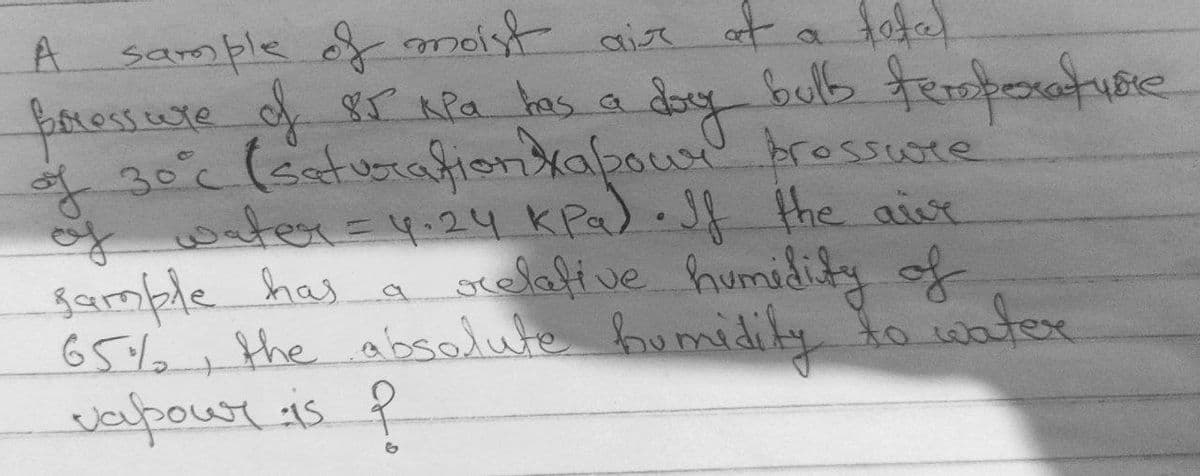 A sample of moist air at a total
pressure of 85 KPa has a dry bulb temperature
of 30°c (saturation vapour pressure
of water = 4.24 KPa). If the air
sample has a relative humidity of
65%, the absolute humidity to water
vapour is ?